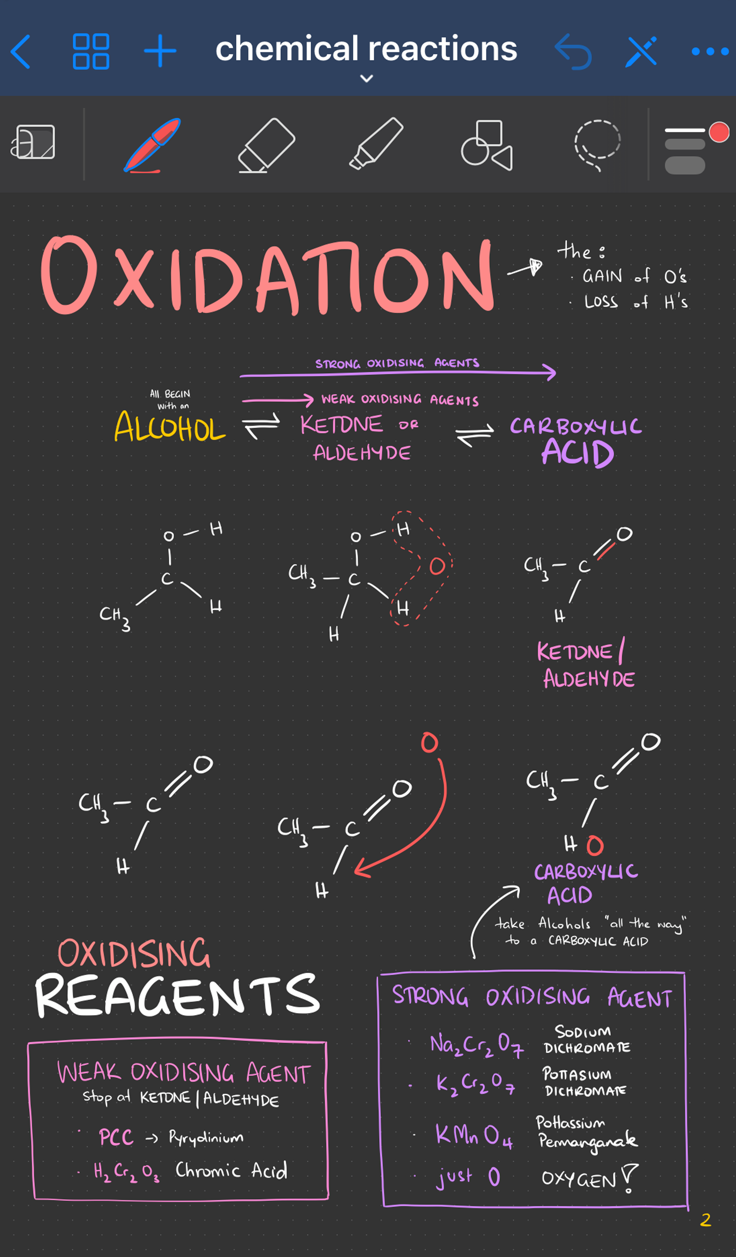 chemical reactions
OXIDATION
the:
· GAIN of O's
· LOSS of H's
STRONG OXIDISING AGENTS
All BEGIN
with an
WEAK OXIDISING AGENTS
ALCOHOL ⇌ KETONE OR ⇌ CARBOXYLIC
ALDEHYDE ACID
O – H
C
CH3 H
O – H
CH3 – C O
H
H
O
CH3 – C
H
KETONE/
ALDEHYDE
O
CH3 – C
H
O
O
CH3 – C
H
O
CH3 – C
H O
CARBOXYLIC
ACID
take Alcohols "all the way"
to a CARBOXYLIC ACID
OXIDISING
REAGENTS
WEAK OXIDISING AGENT
Stop at KETONE/ALDEHYDE
· PCC → Pyrydinium
· H2Cr2O3 Chromic Acid
STRONG OXIDISING AGENT
· Na2Cr2O7 SODIUM
DICHROMATE
· K2Cr2O7 POTTASIUM
DICHROMATE
· KMnO4 Pottassium
Permanganate
· just O OXYGEN!
2